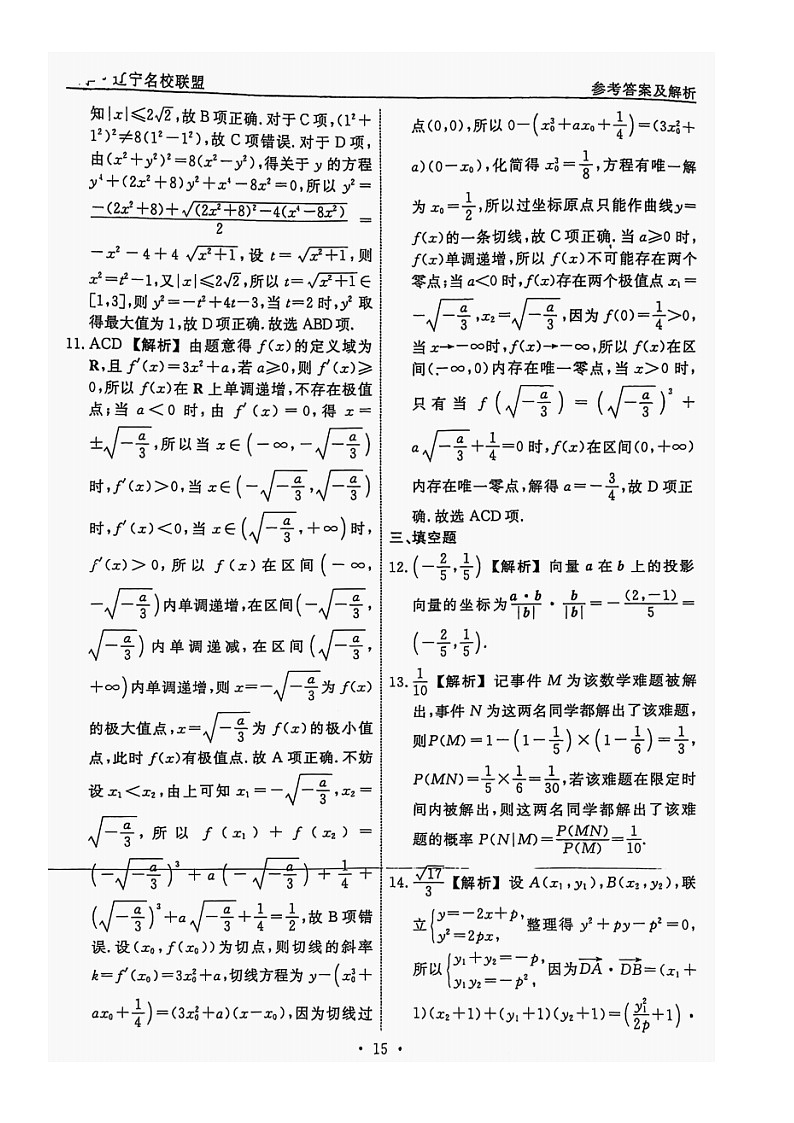 ·辽宁名校联盟
参考答案及解析
知|x|≤2√2,故B项正确.对于C项,(1²+
1²)²≠8(1²−1²),故C项错误.对于D项,
由(x²+y²)²=8(x²−y²),得关于y的方程
y⁴+(2x²+8)y²+x⁴−8x²=0,所以y²=
(−(2x²+8)+√((2x²+8)²−4(x⁴−8x²)))/2 =
−x²−4+4√(x²+1),设t=√(x²+1),则
x²=t²−1,又|x|≤2√2,所以t=√(x²+1)∈
[1,3],则y²=−t²+4t−3,当t=2时,y²取
得最大值为1,故D项正确.故选ABD项.
11. ACD 【解析】由题意得f(x)的定义域为
R,且f′(x)=3x²+a,若a≥0,则f′(x)≥
0,所以f(x)在R上单调递增,不存在极值
点;当a<0时,由f′(x)=0,得x=
±√(−a/3),所以当x∈(−∞,−√(−a/3))
时,f′(x)>0,当x∈(−√(−a/3),√(−a/3))
时,f′(x)<0,当x∈(√(−a/3),+∞)时,
f′(x)>0,所以f(x)在区间(−∞,
−√(−a/3))内单调递增,在区间(−√(−a/3),
√(−a/3))内单调递减,在区间(√(−a/3),
+∞)内单调递增,则x=−√(−a/3)为f(x)
的极大值点,x=√(−a/3)为f(x)的极小值
点,此时f(x)有极值点.故A项正确.不妨
设x₁<x₂,由上可知x₁=−√(−a/3),x₂=
√(−a/3),所以f(x₁)+f(x₂)=
(−√(−a/3))³+a(−√(−a/3))+1/4+
(√(−a/3))³+a√(−a/3)+1/4=1/2,故B项错
误.设(x₀,f(x₀))为切点,则切线的斜率
k=f′(x₀)=3x₀²+a,切线方程为y−(x₀³+
ax₀+1/4)=(3x₀²+a)(x−x₀),因为切线过
点(0,0),所以0−(x₀³+ax₀+1/4)=(3x₀²+
a)(0−x₀),化简得x₀³=1/8,方程有唯一解
为x₀=1/2,所以过坐标原点只能作曲线y=
f(x)的一条切线,故C项正确.当a≥0时,
f(x)单调递增,所以f(x)不可能存在两个
零点;当a<0时,f(x)存在两个极值点x₁=
−√(−a/3),x₂=√(−a/3),因为f(0)=1/4>0,
当x→−∞时,f(x)→−∞,所以f(x)在区
间(−∞,0)内存在唯一零点,当x>0时,
只有当f(√(−a/3))=(√(−a/3))³+
a√(−a/3)+1/4=0时,f(x)在区间(0,+∞)
内存在唯一零点,解得a=−3/4,故D项正
确.故选ACD项.
三、填空题
12. (−2/5,1/5) 【解析】向量a在b上的投影
向量的坐标为a·b/|b|·b/|b|=−(2,−1)/5=
(−2/5,1/5).
13. 1/10 【解析】记事件M为该数学难题被解
出,事件N为这两名同学都解出了该难题,
则P(M)=1−(1−1/5)×(1−1/6)=1/3,
P(MN)=1/5×1/6=1/30,若该难题在限定时
间内被解出,则这两名同学都解出了该难
题的概率P(N|M)=P(MN)/P(M)=1/10.
14. √17/3 【解析】设A(x₁,y₁),B(x₂,y₂),联
立{y=−2x+p, y²=2px,整理得y²+py−p²=0,
所以{y₁+y₂=−p, y₁y₂=−p²,因为DA·DB=(x₁+
1)(x₂+1)+(y₁+1)(y₂+1)=(y₁²/2p+1)·
· 15 ·